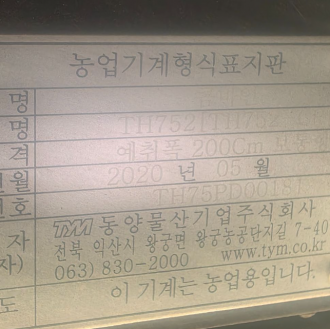 농업기계형식표지판
명
명 TH752[TH752
격 예취폭 200Cm 보
년월 2020 년 05 월
번호 TH75PD00181
자 TYM 동양물산기업주식회사
자) 전북 익산시 왕궁면 왕궁농공단지길 7-40
063) 830-2000 www.tym.co.kr
도 이 기계는 농업용입니다.